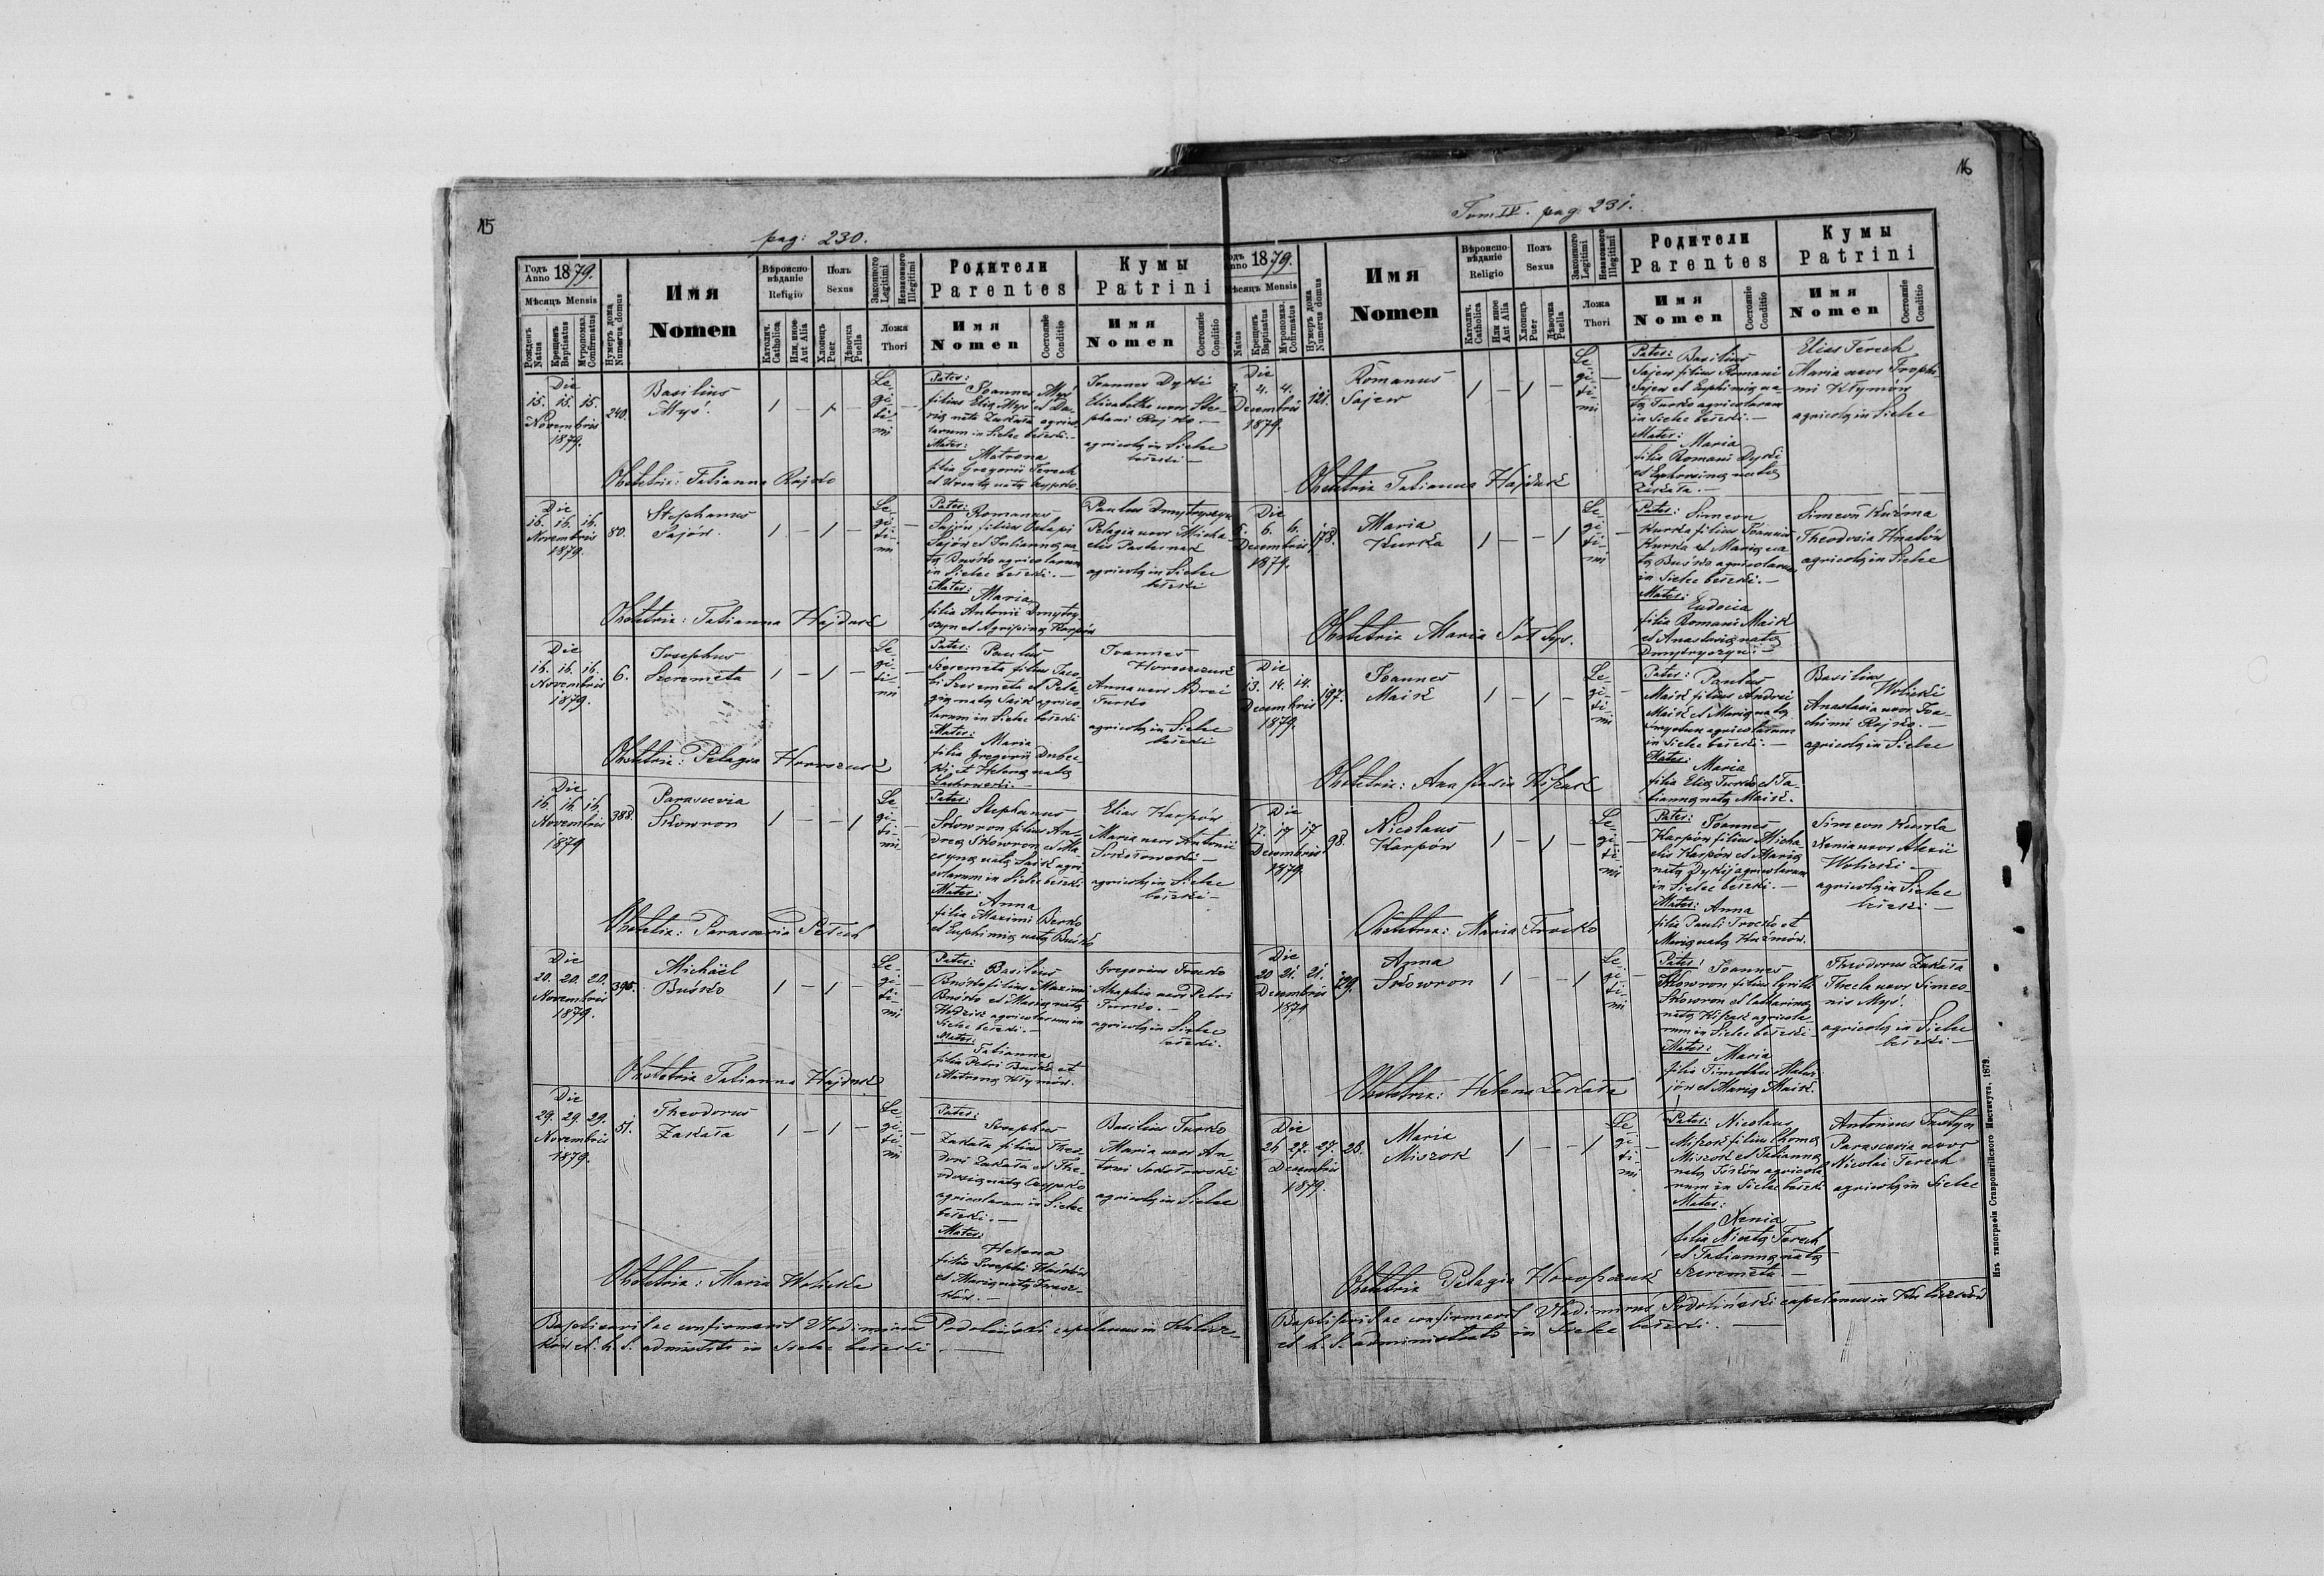 15
pag: 230.
Годъ Anno 1879.
Мѣсяцъ Mensis
Рожденъ Natus
Крещенъ Baptisatus
Мѵропомаз. Confirmatus
Нумеръ дома Numerus domus
Имя
Nomen
Вѣроисповѣданіе
Religio
Католич. Catholica
Или иное Aut Alia
Полъ
Sexus
Хлопецъ Puer
Дѣвочка Puella
Законного Legitimi
Незаконного Illegitimi
Ложа
Thori
Родители
Parentes
Имя
Nomen
Состояніе Conditio
Кумы
Patrini
Имя
Nomen
Состояніе Conditio
Die
15. 15. 15.
Novembris
1879.
240.
Basilius
Myś.
1 – 1 –
Le-
gi-
ti-
mi
Pater:
Joannes Myś
filius Eliæ Myś et Da-
riæ natæ Zakała agrico-
larum in Sielec bełzski.–
Mater:
Matrona
filia Gregorii Terech
Joannes Dyki
Elisabetha uxor Ste-
phani Rajko –
agricolæ in Sielec
bełzski –
Obstetrix: Tatianna Rajko
Die
16. 16. 16.
Novembris
1879.
80.
Stephanus
Sajów.
1 – 1 –
Le-
gi-
ti-
mi
Pater:
Romanus
Sajów filius Ostapi
Sajów et Julianna na-
tæ Buśko agricolarum
in Sielec bełzski.–
Mater:
Maria
filia Antonii Dmytry-
szyn et Agripinæ Karpów
Paulus Dmytryszyn
Pelagia uxor Micha-
elis Pasternak
agricolæ in Sielec
bełzski
Obstetrix: Tatianna Hajduk
Die
16. 16. 16.
Novembris
1879.
6.
Josephus
Szeremeta
1 – 1 –
Le-
gi-
ti-
mi
Pater: Paulus
Szeremeta filius Jaco-
bi Szeremeta et Pela-
giæ natæ Saik agrico-
larum in Sielec bełzski
Mater:
Maria
filia Gregorii Dubec-
ki et Helenæ natæ
Joannes
Anna uxor Andrei
Turko
agricolæ in Sielec
bełzski
Obstetrix: Pelagia
Die
16. 16. 16.
Novembris
1879
388.
Parascevia
Skowron
1 – – 1
Le-
gi-
ti-
mi
Pater:
Stephanus
Skowron filius An-
dreæ Skowron et Ma-
natæ Saik agri-
colarum in Sielec bełzski
Mater:
Anna
filia Maximi Berko
et Euphimiæ natæ Buśko
Elias Karpów
Maria uxor Antonii
Sokołowski –
agricolæ in Sielec
bełzski –
Obstetrix: Parascevia Petech
Die
20. 20. 20.
Novembris
1879.
395.
Michäel
Buśko
1 – 1 –
Le-
gi-
ti-
mi
Pater:
Basilius
Buśko filius Maximi
Buśko et Mariæ natæ
agricolarum in
Sielec bełzski.–
Mater:
Tatianna
filia Petri Buśko et
Matronæ Kłymów.
Gregorius Trocko
Ahaphia uxor Petri
Turko.–
agricolæ in Sielec
bełzski.
Obstetrix Tatianna Hajduk
Die
29. 29. 29.
Novembris
1879.
51.
Theodorus
Zakała
1 – 1 –
Le-
gi-
ti-
mi
Pater:
Josephus
Zakała filius Theo-
dori Zakała et The-
odosiæ natæ Czypko
agricolarum in Sielec
bełzski.–
Mater:
Helena
filia Josephi
et Mariæ natæ
Basilius Turko
Maria uxor An-
tonii Sokołowski
agricolæ in Sielec
Obstetrix: Maria Wolicka
Baptisavit ac confirmavit Wladimirus Podoliński capelanus in Kulicz-
ków et h. t. administ in Sielec bełzski.–
16
Tom IV. pag: 231.
Годъ Anno 1879.
Мѣсяцъ Mensis
Natus
Крещенъ Baptisatus
Мѵропомаз. Confirmatus
Нумеръ дома Numerus domus
Имя
Nomen
Вѣроисповѣданіе
Religio
Католич. Catholica
Или иное Aut Alia
Полъ
Sexus
Хлопецъ Puer
Дѣвочка Puella
Законного Legitimi
Незаконного Illegitimi
Ложа
Thori
Родители
Parentes
Имя
Nomen
Состояніе Conditio
Кумы
Patrini
Имя
Nomen
Состояніе Conditio
Die
3. 4. 4.
Decembris
1879.
121.
Romanus
Sajew
1 – 1 –
Le-
gi-
ti-
mi
Pater: Basilius
Sajew filius Romani
Sajew et Euphimiæ na-
tæ Turko agricolarum
in Sielec bełzski.–
Mater:
Maria
filia Romani Dyki
et Euphrosinæ natæ
Zakała.–
Elias Terech
Maria uxor Trophi-
mi Kłymów
agricolæ in Sielec
Obstetrix Tatianna Hajduk
Die
6. 6. 6.
Decembris
1879.
178.
Maria
Kurka
1 – – 1
Le-
gi-
ti-
mi
Pater: Simeon
Kurka filius Joannis
Kurka et Mariæ na-
tæ Buśko agricolarum
in Sielec bełzski.–
Mater:
Eudocia
filia Romani Maik
et Anastasiæ natæ
Dmytryszyn.–
Simeon Kuźma
Theodosia Hnatów
agricolæ in Sielec
Obstetrix Maria
Die
13. 14. 14.
Decembris
1879.
197.
Joannes
Maik
1 – 1 –
Le-
gi-
ti-
mi
Pater:
Paulus
Maik filius Andrei
Maik et Mariæ natæ
agricolarum
in Sielec bełzski.–
Mater:
Maria
filia Eliæ Turko et Ta-
tiannæ natæ Maik.
Basilius
Wolicki
Anastasia uxor Joa-
chimi Rajko.–
agricolæ in Sielec
Obstetrix: Anastasia
Die
17. 17 17
Decembris
1879.
98.
Nicolaus
Karpów
1 – 1 –
Le-
gi-
ti-
mi
Pater: Joannes
Karpów filius Micha-
elis Karpów et Mariæ
natæ Dykij agricolarum
in Sielec bełzski.–
Mater: Anna
filia Pauli Trocko et
Mariæ natæ Kuźmów.
Simeon Kurka
Xenia uxor Alexii
Wolicki –
agricolæ in Sielec
bełzski –
Obstetrix: Maria Trocko
Die
20 21. 21.
Decembris
1879
129.
Anna
Skowron
1 – – 1
Le-
gi-
ti-
mi
Pater: Joannes
Skowron filius Cyrilli
Skowron et Catharinæ
natæ agricola-
rum in Sielec bełzski
Mater:
Maria
filia Timothei
et Mariæ Maik.
Theodorus Zakała
Thecla uxor Simeo-
nis Myś.
agricolæ in Sielec
bełzski –
Obstetrix: Helena Zakała
Die
26 27. 27.
Decembris
1879.
28.
Maria
Miszok
1 – – 1
Le-
gi-
ti-
mi
Pater: Nicolaus
Miszok filius Thomæ
Miszok et Tatiannæ
natæ agricola-
rum in Sielec bełzski
Mater:
Xenia
filia Nicetæ Terech
et Tatiannæ natæ
Szeremeta.–
Antonius
Parascevia uxor
Nicolai Terech
agricolæ in Sielec
Obstetrix Pelagia
Baptisavit ac confirmavit Wladimirus Podoliński capelanus in Kuliczków
et h. t. administrator in Sielec bełzski.–
Изъ типографіи Ставропигійского Института, 1879.